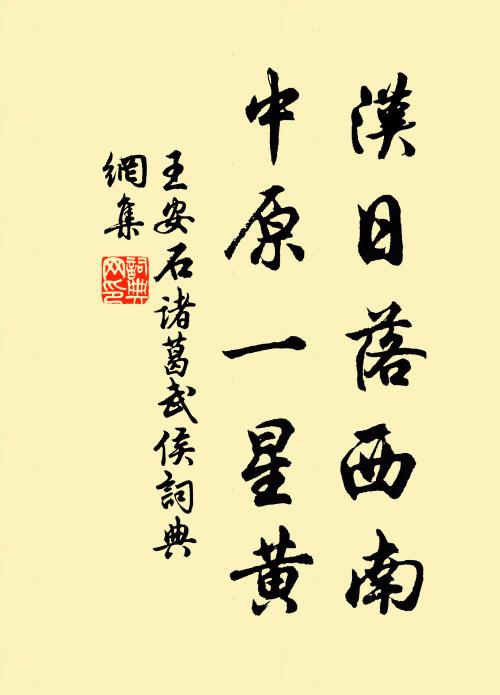 漢日落西南
中原一星黃
王安石諸葛武侯詞典
網集
詞典
网印